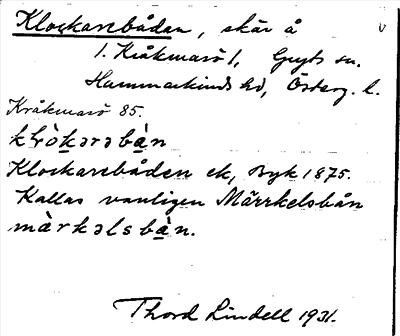 Klockarebåden, skär å
1. Kråkmarö 1, Gryts sn.
Hammarkinds hd, Österg. l.
Kråkmarö 85.
Klockarebåden ek, Byk 1875.
Kallas vanligen Märrkelsbån
Thord Lindell 1931.